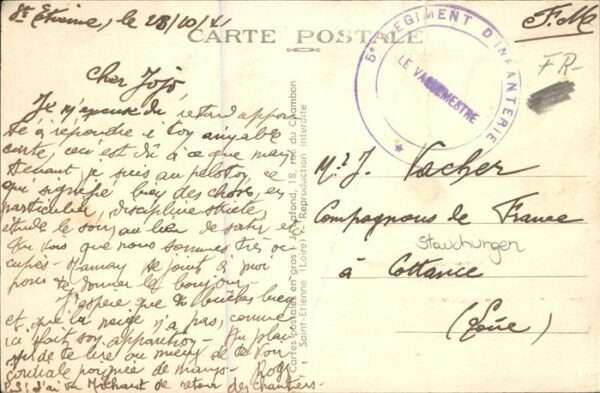 St Etienne, le 28/10/41
F.M
CARTE POSTALE
5e REGIMENT D'INFANTERIE
LE VAGUEMESTRE
FR-
Cher Jojo,
Je m'excuse du retard apporté
à répondre à ton aimable
carte, ceci est dû à ce que maintenant
je suis au peloton, ce
qui signifie bien des choses, en
particulier, discipline stricte,
étude le soir au lieu de sortir et
tu vois que nous sommes très occupés
- se joint à moi
pour te donner le bonjour -
J'espère que tu bien
et que la neige n'a pas, comme
ici fait son apparition - Au plaisir
de te lire ou mieux de te voir
cordiale poignée de mains - Roger
P.S: j'ai vu Michaut de retour des chantiers -
Cartes postales en gros 18, rue du Chambon
Saint-Etienne (Loire) - Reproduction interdite
Mr J. Vacher
Compagnons de France
à Cottance
(Loire)